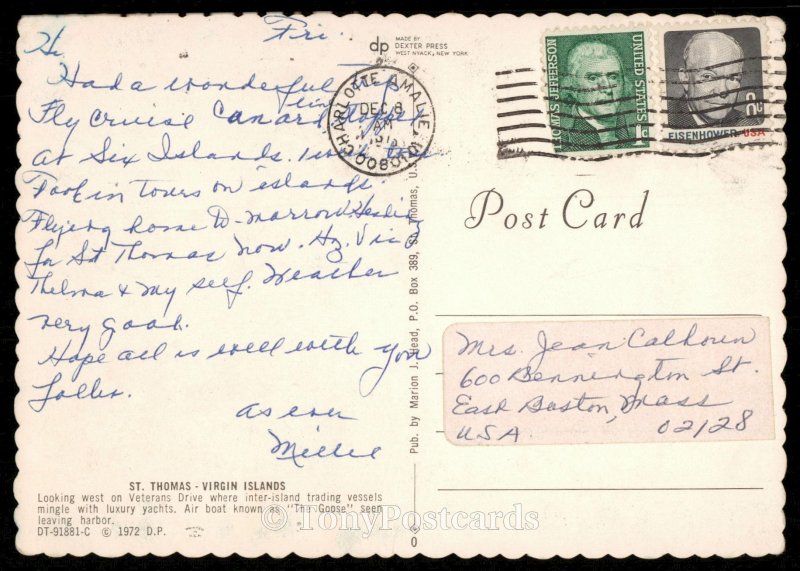 Hi
Fri.
Had a wonderful Trip
Fly Cruise Cunard line
at Six Islands.
Took in tours on islands.
Flying home to-morrow
for St Thomas now.
Thelma & my self. Weather
very good.
Hope all is well with you
Folks.
as ever
Millie
ST. THOMAS - VIRGIN ISLANDS
Looking west on Veterans Drive where inter-island trading vessels
mingle with luxury yachts. Air boat known as "The Goose" seen
leaving harbor.
DT-91881-C © 1972 D.P.
dp MADE BY
DEXTER PRESS
WEST NYACK, NEW YORK
CHARLOTTE AMALIE, VI 00801
DEC 8
AM
Pub. by Marion J. Head, P.O. Box 389, St. Thomas, U.S.
0
THOMAS JEFFERSON
UNITED STATES
1c
EISENHOWER·USA
Post Card
Mrs. Jean Calhoun
600 Bennington St.
East Boston, Mass
USA 02128
© TonyPostcards